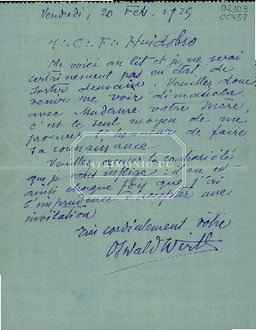 Vendredi, 20 Fév. 1925
02303
CC457
T∴ C∴ F∴ Huidobro
Me voici au lit et je ne serai
certainement pas en état de
sortir demain. Veuillez donc
venir me voir dimanche
avec Madame votre Mère,
c'est le seul moyen de me
procurer le bonheur de faire
sa connaissance.
Veuillez
que
ainsi chaque fois que j'ai
l'imprudence d'accepter une
invitation
Très cordialement vôtre
Oswald Wirth
PATRIMONIO UC